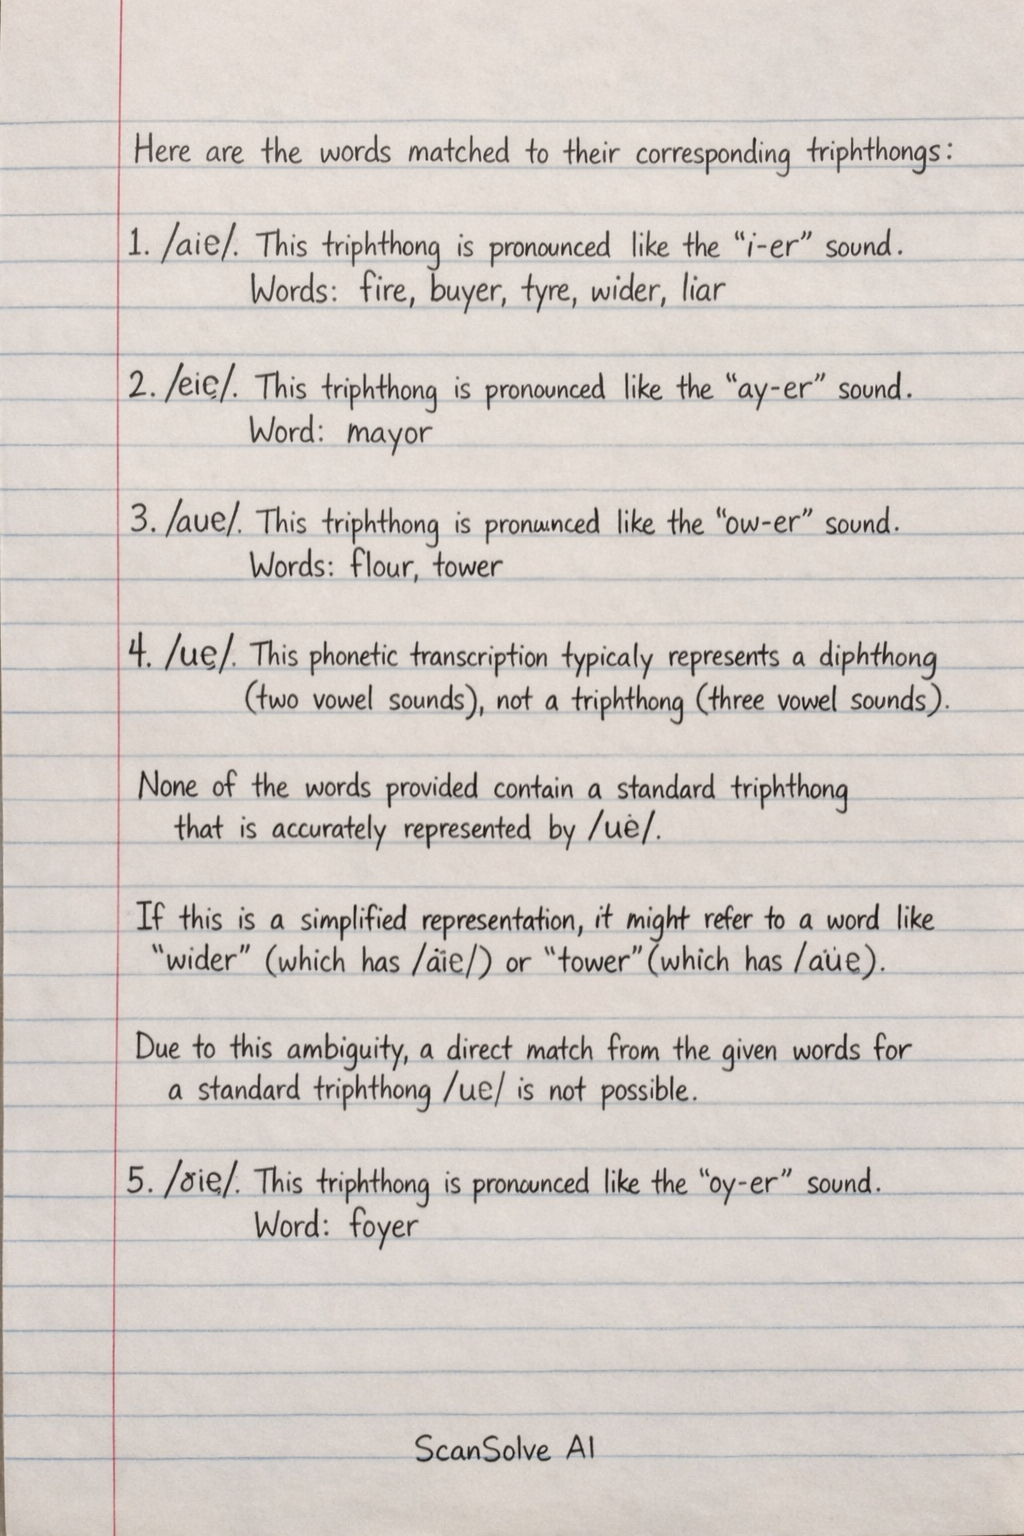 Here are the words matched to their corresponding triphthongs:
1. /aie/. This triphthong is pronounced like the “i-er” sound.
Words: fire, buyer, tyre, wider, liar
2. /eiẹ/. This triphthong is pronounced like the “ay-er” sound.
Word: mayor
3. /aue/. This triphthong is pronuunced like the “ow-er” sound.
Words: flour, tower
4. /uẹ/. This phonetic transcription typicaly represents a diphthong
(two vowel sounds), not a triphthong (three vowel sounds).
None of the words provided contain a standard triphthong
that is accurately represented by /uė/.
If this is a simplified representation, it might refer to a word like
“wider” (which has /äie/) or “tower” (which has /aüe).
Due to this ambiguity, a direct match from the given words for
a standard triphthong /ue/ is not possible.
5. /ɤiẹ/. This triphthong is pronounced like the “oy-er” sound.
Word: foyer
ScanSolve AI